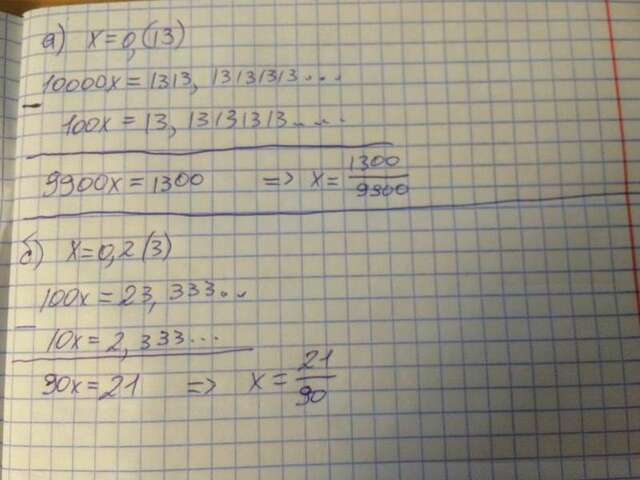 а) x=0,(13)
10000x = 1313, 13131313...
−
100x = 13, 13131313...
9900x = 1300 => x = 1300/9900
б) x=0,2(3)
100x = 23, 333...
−
10x = 2, 333...
90x = 21 => x = 21/90